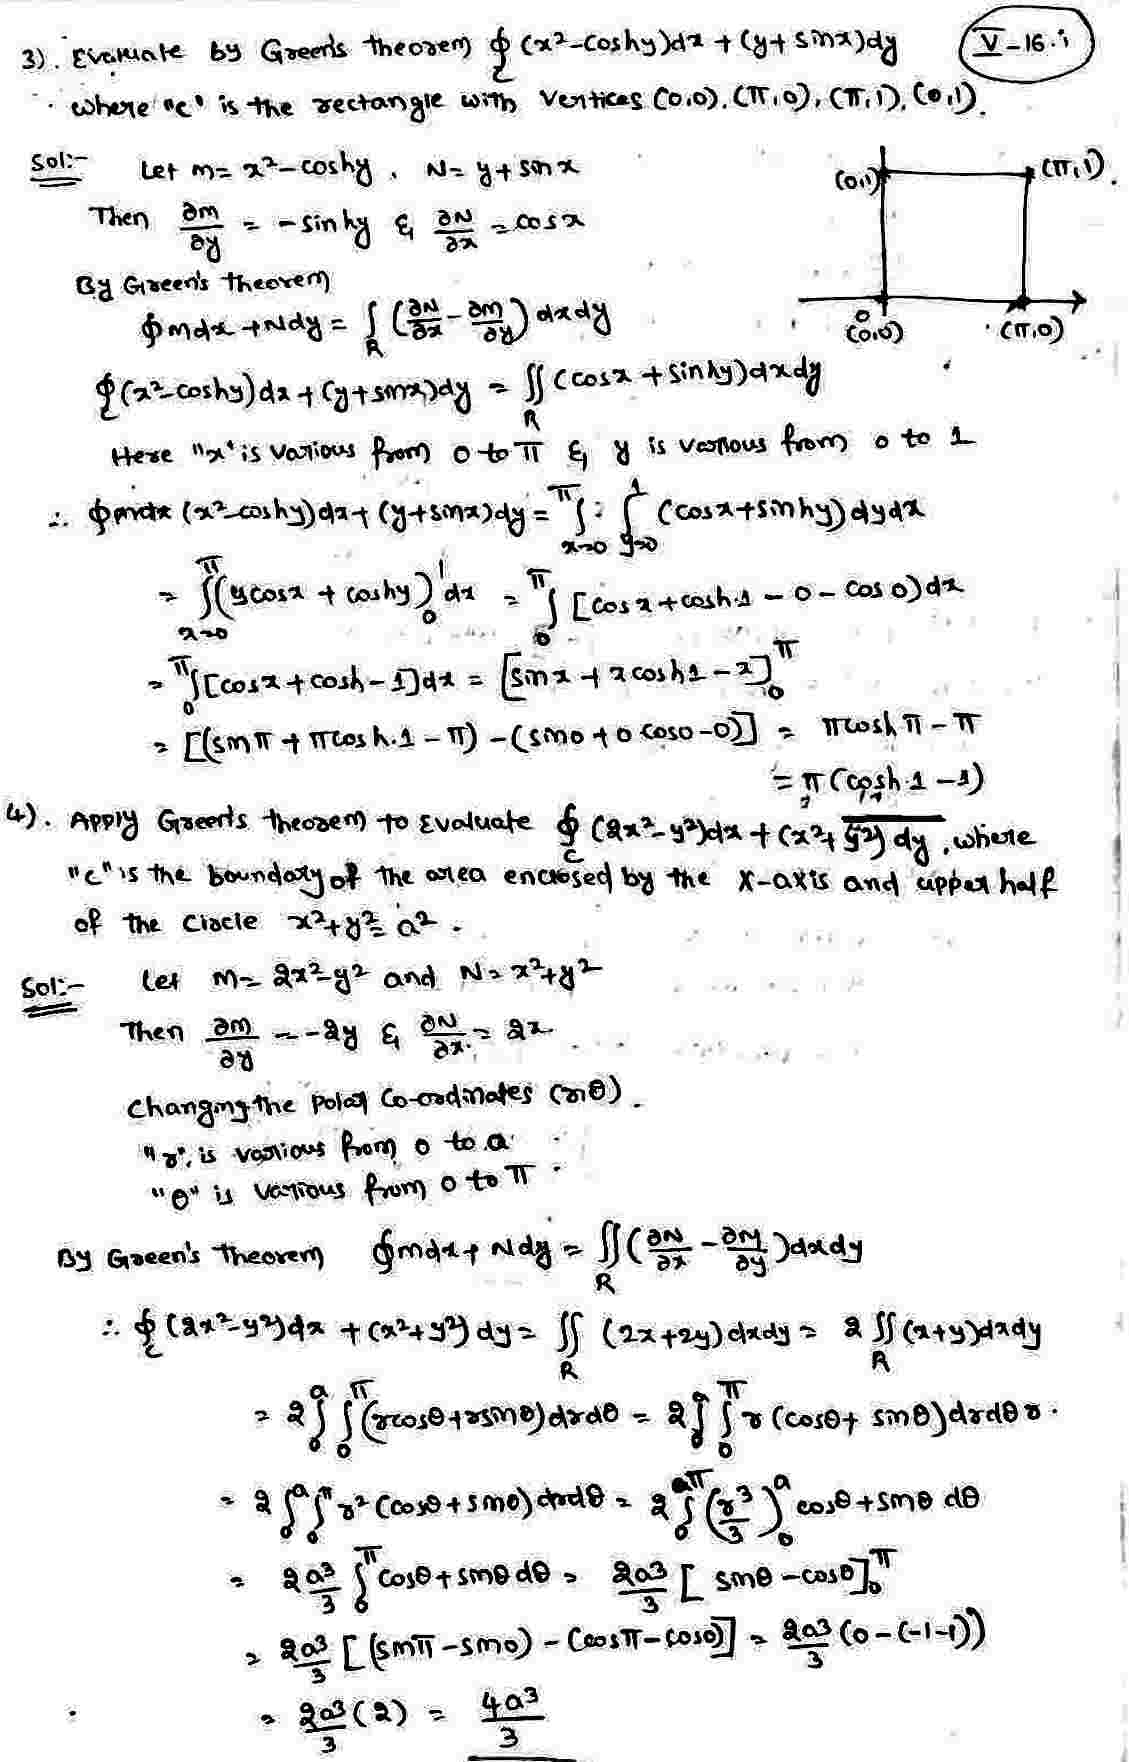 3). Evaluate by Green's theorem ∮_C (x²-coshy)dx + (y+ sinx)dy
V-16.i
where "c" is the rectangle with vertices (0,0), (π,0), (π,1), (0,1).
Sol:- Let M= x²-coshy, N= y+ sin x
Then ∂M/∂y = -sinhy & ∂N/∂x = cosx
(0,1) (π,1).
0 (0,0) (π,0)
By Green's theorem
∮Mdx+Ndy = ∫_R (∂N/∂x - ∂M/∂y) dxdy
∮_C (x²-coshy)dx + (y+sinx)dy = ∬_R (cosx + sinhy)dxdy
Here "x" is various from 0 to π & y is various from 0 to 1
∴ ∮ (x²-coshy)dx+ (y+sinx)dy = ∫_{x=0}^π ∫_{y=0}^1 (cosx+sinhy)dydx
= ∫_{x=0}^π (ycosx + coshy)_0^1 dx = ∫_0^π [cosx+cosh.1 - 0 - cos 0)dx
= ∫_0^π [cosx+cosh-1]dx = [sinx + xcosh1 - x]_0^π
= [(sinπ + πcosh.1 - π) - (sin0 + 0 cos0 -0)] = πcosh π - π
= π(cosh.1 -1)
4). Apply Green's theorem to Evaluate ∮_C (2x²-y²)dx + (x²+y²) dy, where
"c" is the boundary of the area enclosed by the x-axis and upper half
of the circle x²+y²= a².
Sol:- Let M= 2x²-y² and N= x²+y²
Then ∂M/∂y = -2y & ∂N/∂x = 2x
Changing the polar co-ordinates (r,θ).
"r", is various from 0 to a
"θ" is various from 0 to π
By Green's theorem ∮Mdx+Ndy = ∬_R (∂N/∂x - ∂M/∂y)dxdy
∴ ∮_C (2x²-y²)dx + (x²+y²) dy = ∬_R (2x+2y)dxdy = 2 ∬_R (x+y)dxdy
= 2 ∫_0^a ∫_0^π (rcosθ+rsinθ)drdθ = 2 ∫_0^a ∫_0^π r (cosθ+ sinθ)drdθ r.
= 2 ∫_0^a ∫_0^π r² (cosθ+sinθ) drdθ = 2 ∫_0^π (r³/3)_0^a cosθ+sinθ dθ
= 2a³/3 ∫_0^π cosθ+sinθ dθ = 2a³/3 [ sinθ -cosθ]_0^π
= 2a³/3 [(sinπ -sin0) - (cosπ-cos0)] = 2a³/3 (0-(-1-1))
= 2a³/3 (2) = 4a³/3